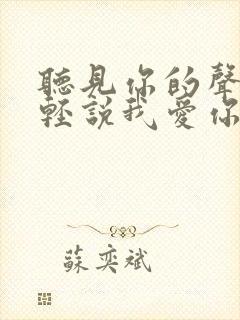 聽見你的聲
輕說我愛你
蘇奕斌